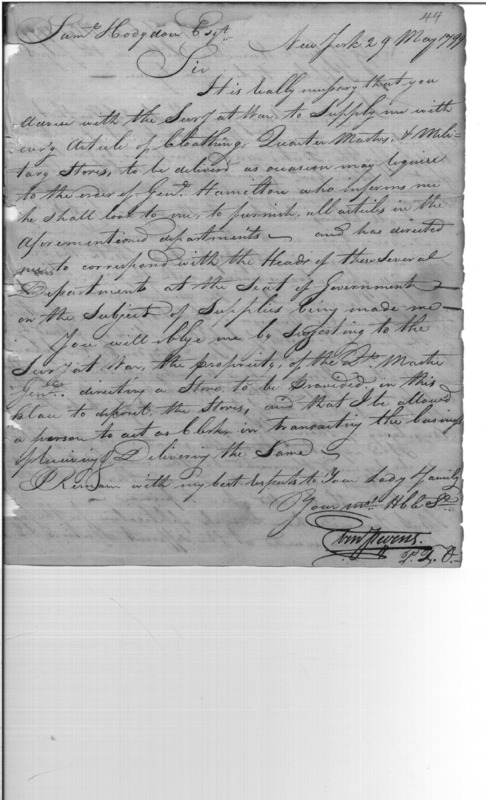 44
Saml Hodgdon Esqr
New York 29 May 1799
Sir
It is really nessary that you
advise with the Secy at War to Supply me with
every Article of Cloathing, Quarter Masters & Mili-
tary Stores, to be deliverd as occasion may require
to the order of Genl Hamilton who informs me
he shall look to me, to furnish all articles in the
aforementioned departments — and has directed
me to correspond with the Heads of these several
Departments at the Seat of Government
on the Subject of Supplies being made me —
You will oblige me by Sugesting to the
Secy at War, the propriety, of the Qr Master
Genl directing a Store to be provided in this
place to deposit the Stores, and that I be allowed
a person to act as Clerk in transacting the business
Receiving & Delivering the Same
I Remain with my best respects to Your Lady & family
Your mot Hble St
Eben Stevens